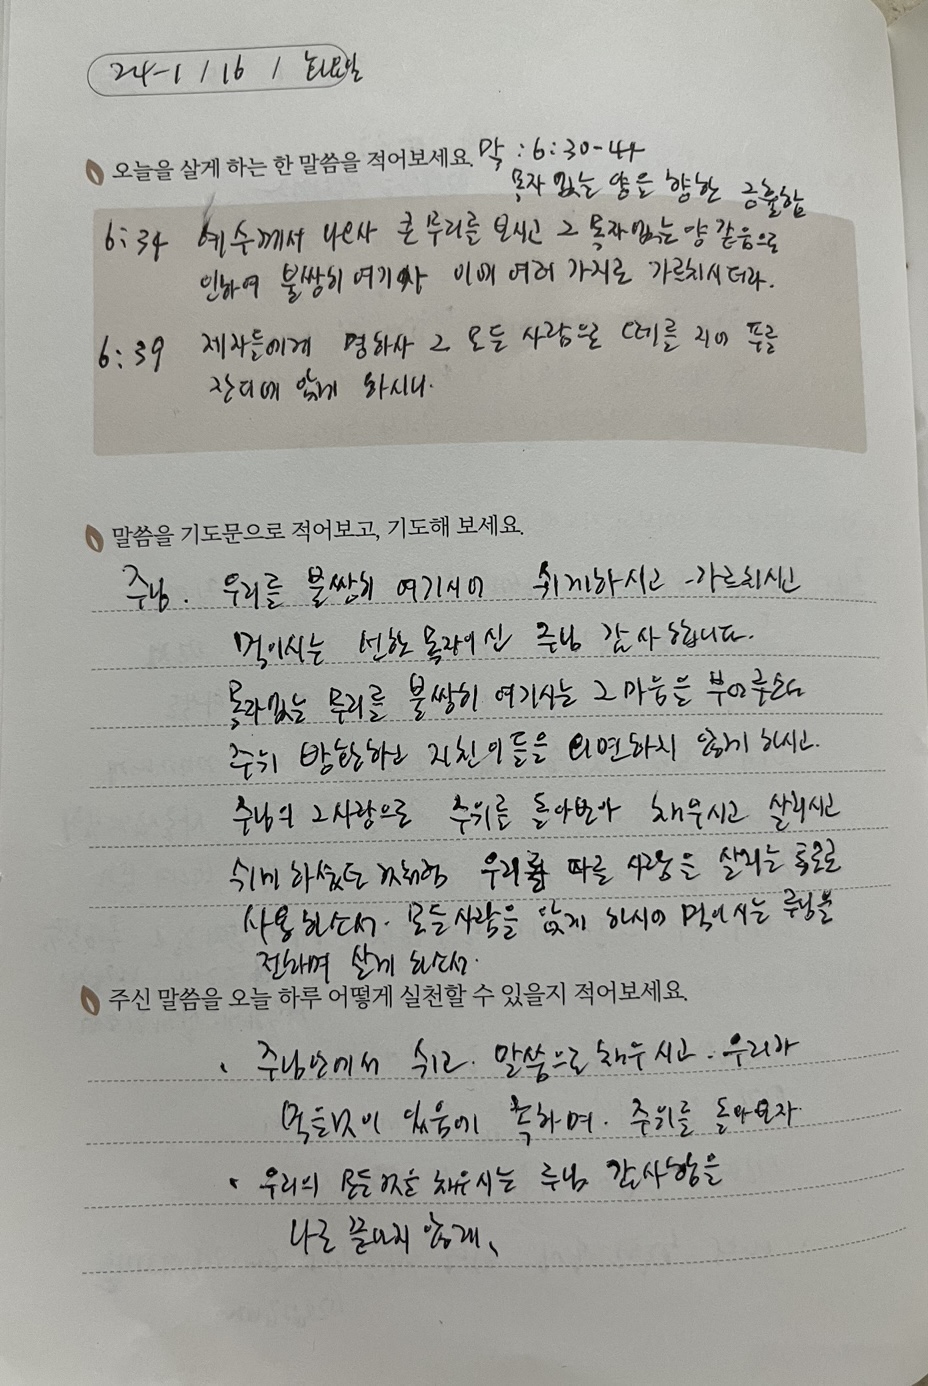 24-1 / 16 / 화요일
오늘을 살게 하는 한 말씀을 적어보세요. 막 : 6:30-44
목자 없는 양을 향한 긍휼함
6:34 예수께서 나오사 큰 무리를 보시고 그 목자없는 양 같음으로
인하여 불쌍히 여기사 이에 여러 가지로 가르치시더라.
6:39 제자들에게 명하사 그 모든 사람으로 떼를 지어 푸른
잔디에 앉게 하시니.
말씀을 기도문으로 적어보고, 기도해 보세요.
주님. 우리를 불쌍히 여기시어 쉬게하시고 가르치시고
먹이시는 선한 목자이신 주님 감사합니다.
목자없는 무리를 불쌍히 여기시는 그 마음을 부어주소서
주위 방황하고 지친 이들을 외면하지 않게 하시고.
주님의 그 사랑으로 주위를 돌아보아 채우시고 살리시고
쉬게 하셨던 것처럼 우리를 따를 사랑을 살리는 통로로
사용하소서. 모든사람을 앉게 하시어 먹이시는 주님을
전하며 살게 하소서.
주신 말씀을 오늘 하루 어떻게 실천할 수 있을지 적어보세요.
· 주님안에서 쉬고. 말씀으로 채우시고. 우리가
먹을것이 있음에 족하며. 주위를 돌아보자.
· 우리의 모든것을 채우시는 주님 감사함을
나로 끝나지 않게、